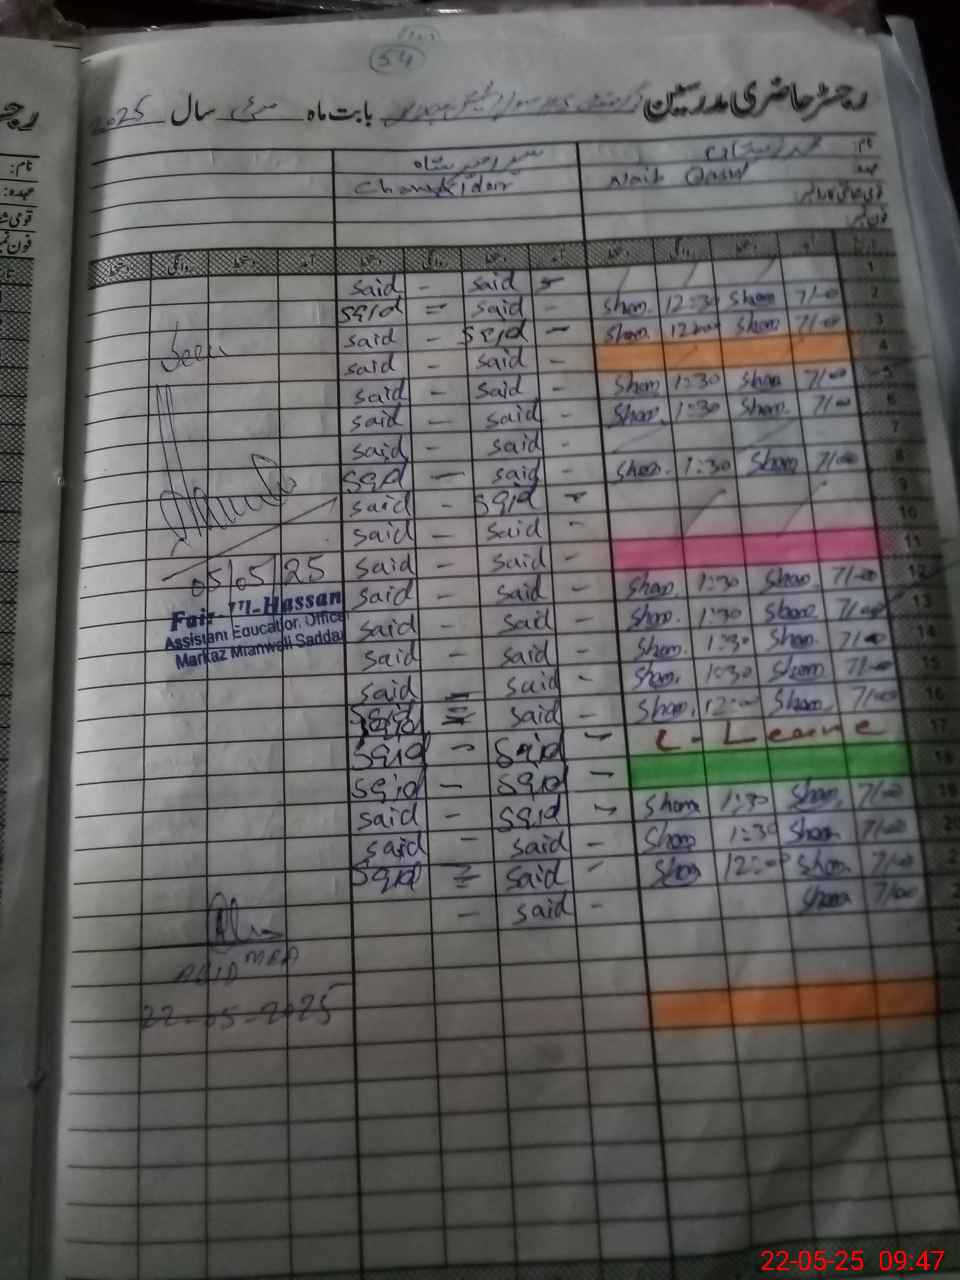 54
رجسٹر حاضری مدرسین بابت ماہ مئی سال 2025
نام:
عہدہ: Naib Qasid Chowkidar
قومی شناختی کارڈ نمبر:
فون نمبر:
تاریخ آمد دستخط روانگی دستخط آمد دستخط روانگی دستخط آمد دستخط روانگی دستخط
1 - said - said
2 7/00 Sham 12:30 Sham. - said = said
3 7/00 Sham 12:00 Sham. - said - said
4 - said - said
5 7/00 Sham 1:30 Sham - said - said
6 7/00 Sham. 1:30 Sham. - said - said
7 - said - said
8 7/00 Sham 1:30 Sham. - said - said
9 - said - said
10 - said - said
11 - said - said
12 7/00 Sham. 1:30 Sham - said - said
13 7/00 Sham. 1:30 Sham. - said - said
14 7/00 Sham. 1:30 Sham. - said - said
15 7/00 Sham 1:30 Sham. - said = said
16 7/00 Sham 12:00 Sham. - said = said
17 L - Leave - said - said
18 - said - said
19 7/00 Sham. 1:30 Sham - said - said
20 7/00 Sham 1:30 Sham - said - said
7/00 Sham 12:00 Sham - said = said
7/00 Sham - said -
Seen
05/05/25
Faiz-Ul-Hassan
Assistant Education Officer
Markaz Mianwali Saddar
ABID MEA
22-05-2025
22-05-25 09:47